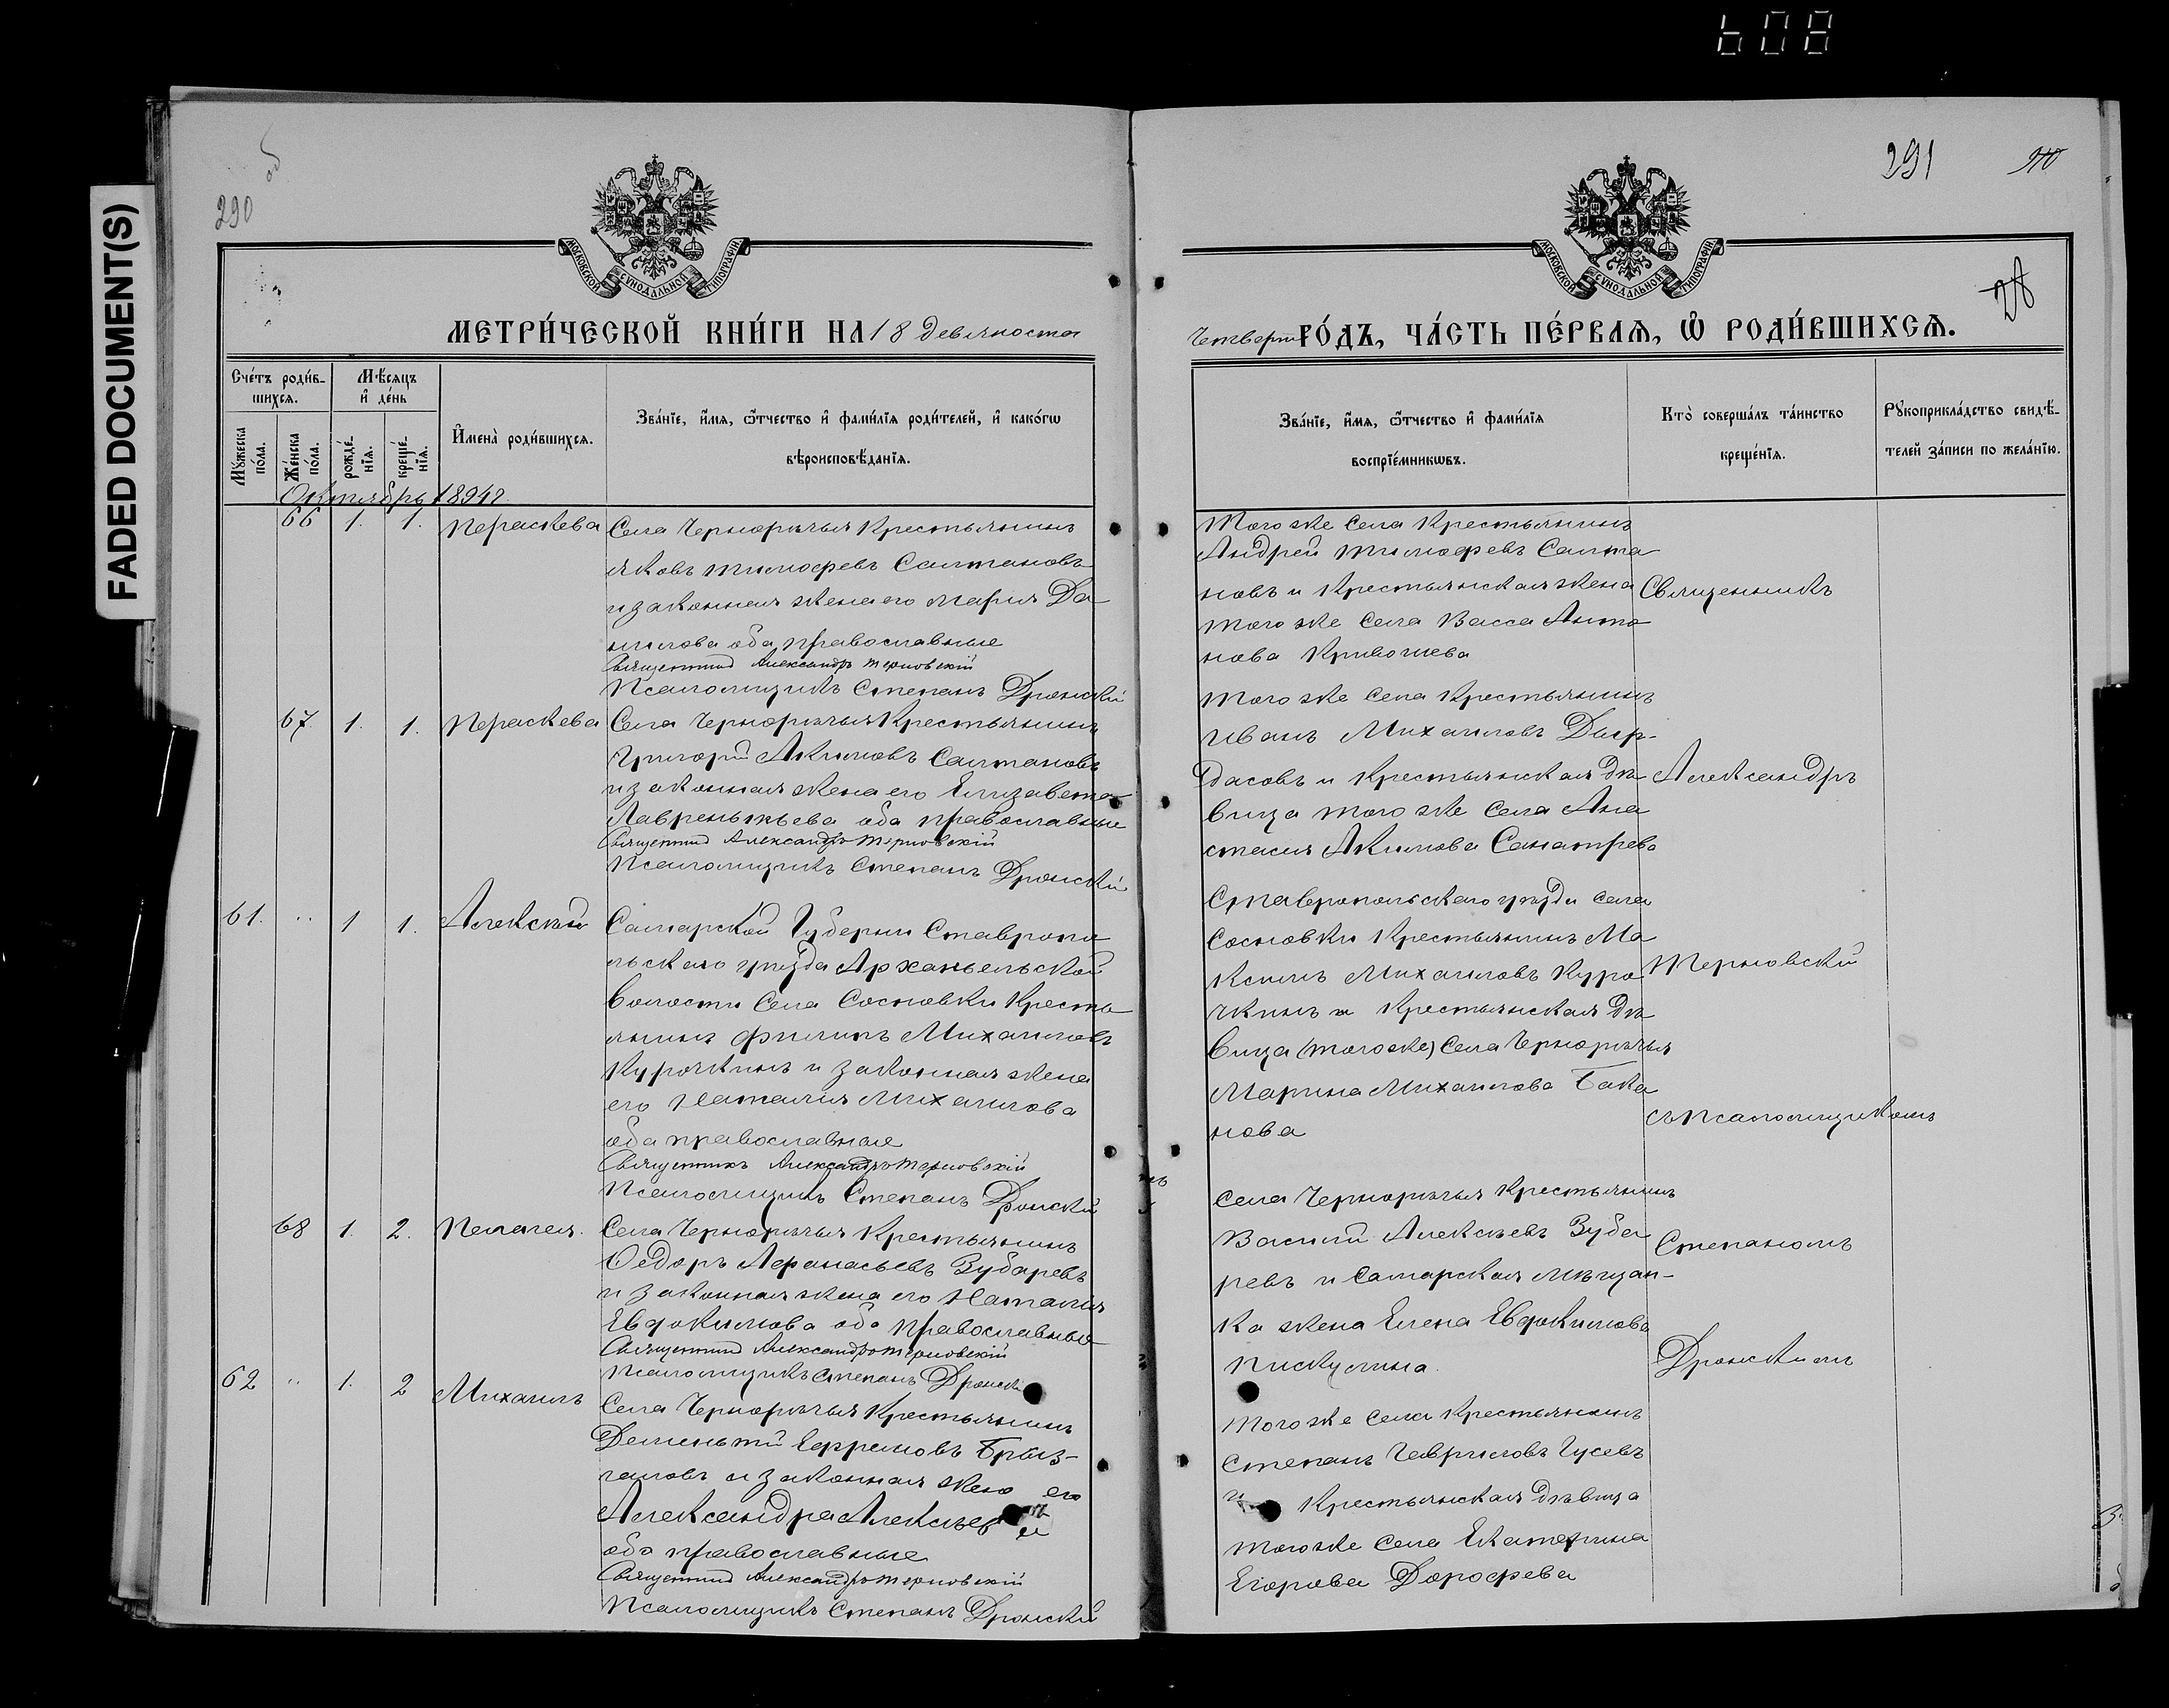 608
FADED DOCUMENT(S)
290
об
МОСКОВСКОЙ СѴНОДАЛЬНОЙ ТИПОГРАФІИ
МЕТРИ́ЧЕСКОЙ КНИ́ГИ НА 18 девяносто
Сче́тъ роди́в-
шихся.
Мѣ́сяцъ
и҆ де́нь
Мꙋ́жеска
по́ла.
Же́нска
по́ла.
рожде́-
нїя.
креще́-
нїя.
И҆мена̀ роди́вшихся.
Зва́нїе, и҆́мя, ѻ҆́тчество и҆ фами́лїя роди́телей, и҆ како́гѡ
вѣроисповѣ́данїя.
Октябрь 1894 г.
66 1. 1. Параскева
Села Чернорѣчья Крестьянинъ
Яковъ Тимофеевъ Салтановъ
и законная жена его Мария Да
нилова оба православные
Священник Александръ Терновскій
Псаломщикъ Степанъ Дронский
67. 1. 1. Параскева
Села Чернорѣчья Крестьянинъ
Григорий Акимовъ Салтановъ
и законная жена его Елизавета
Лаврентьева оба православные
Священник Александръ Терновскій
Псаломщикъ Степанъ Дронский
61. " 1 1. Алексѣй
Самарской Губернии Ставропо
льского уѣзда Архангельской
Волости Села Сосновки Кресть
янинъ Филипъ Михаиловъ
Курочкинъ и законная жена
его Наталия Михаилова
оба православные
Священникъ Александръ Терновскій
Псаломщикъ Степанъ Дронский
68 1. 2. Пелагея.
Села Чернорѣчья Крестьянинъ
Ѳедоръ Афанасьевъ Зубаревъ
и законная жена его Наталия
Евдокимова оба православные
Священник Александръ Терновскій
Псаломщикъ Степанъ Дронски
62 " 1. 2 Михаилъ
Села Чернорѣчья Крестьянинъ
Дементий Ефремовъ Брыз-
галовъ и законная жена его
Александра Алексѣев
оба православные
Священник Александръ Терновскій
Псаломщикъ Степанъ Дронский
291
МОСКОВСКОЙ СѴНОДАЛЬНОЙ ТИПОГРАФІИ
Четверт ГО́ДЪ, ЧА́СТЬ ПЕ́РВАЯ, Ѡ҆ РОДИ́ВШИХСЯ.
Зва́нїе, и҆́мя, ѻ҆́тчество и҆ фами́лїя
воспрїе́мникѡвъ.
Кто̀ соверша́лъ та́инство
креще́нїя.
Рꙋкоприкла́дство свидѣ́-
телей за́писи по жела́нїю.
Того же села Крестьянинъ
Андрей Тимофеевъ Салта
новъ и Крестьянская жена
того же села Васса Анто
нова Кривошева
Того же села Крестьянинъ
Иванъ Михаиловъ Дыр-
дасовъ и Крестьянская дѣ
вица того же села Ана
стасия Акимова
Ставропольского уѣзда села
Сосновки Крестьянинъ Ма
ксимъ Михаиловъ Куро
чкинъ и Крестьянская дѣ
вица (того же) села Чернорѣчья
Марина Михаилова Бака
нова
Села Чернорѣчья Крестьянинъ
Василий Алексѣевъ Зуба
ревъ и Самарская мѣщан-
ка жена Елена Евдокимова
Пискулина
Того же села Крестьянинъ
Степанъ Гавриловъ Гусевъ
и Крестьянская дѣвица
того же села Екатерина
Егорова Дорофеева
Священникъ
Александръ
Терновский
съ псаломщикомъ
Степаномъ
Дронскимъ